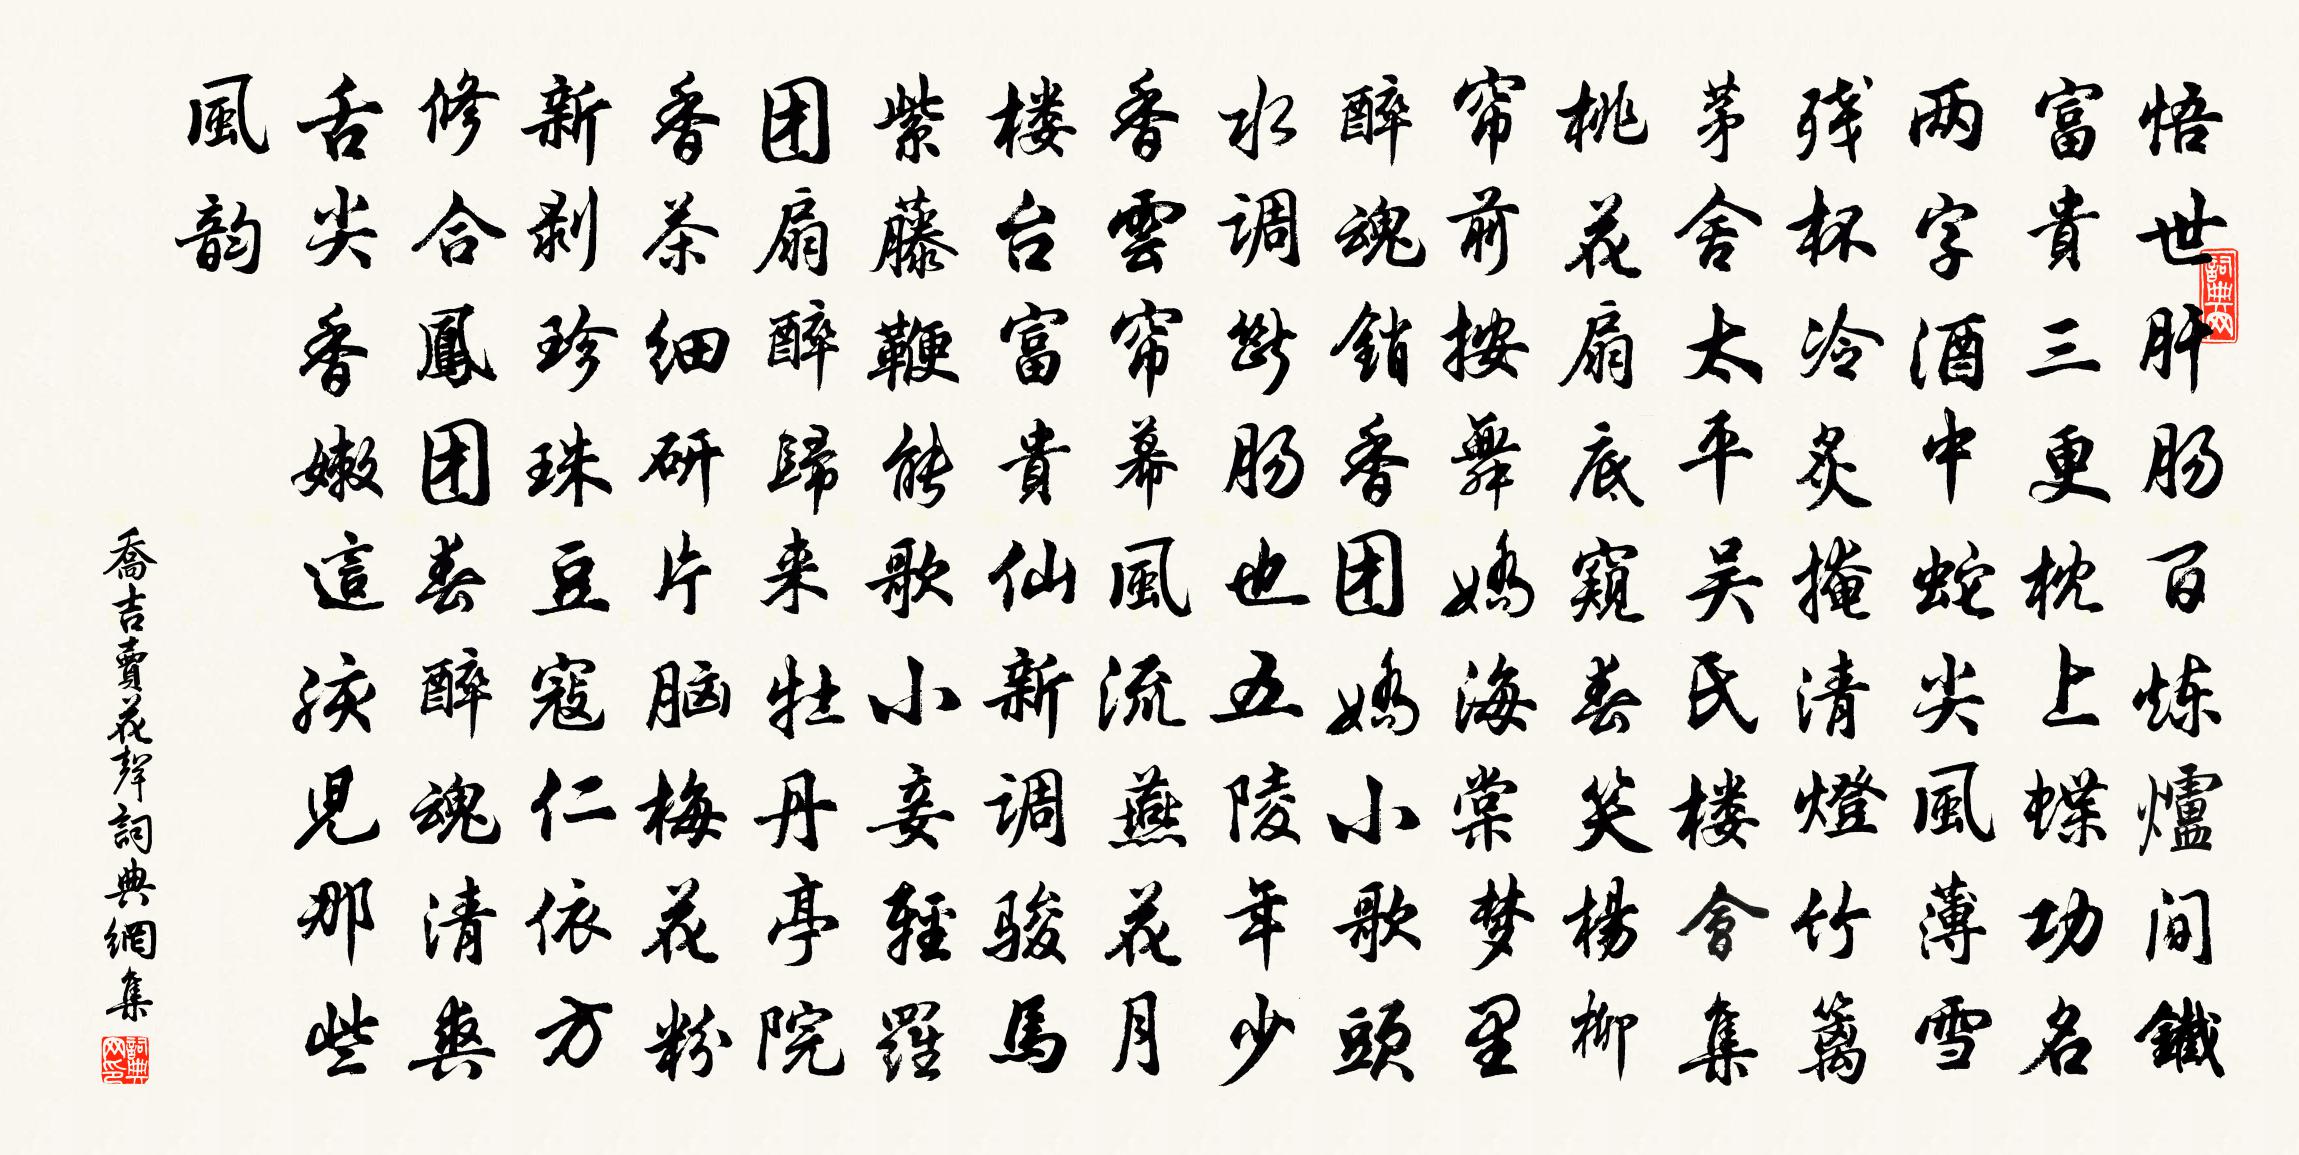 悟世肝肠百炼爐间鐵
富貴三更枕上蝶功名
两字酒中蛇尖風薄雪
残杯冷炙掩清燈竹篱
茅舍太平吴氏楼會集
桃花扇底窺春笑楊柳
帘前按舞嬌海棠梦里
醉魂銷香团嬌小歌頭
水调断肠也五陵年少
香雲帘幕風流燕花月
楼台富貴仙新调骏馬
紫藤鞭能歌小妾輕羅
团扇醉歸来牡丹亭院
香茶细研片脑梅花粉
新剥珍珠豆寇仁依方
修合鳳团春醉魂清爽
舌尖香嫩這孩兒那些
風韵
喬吉賣花聲詞典網集
詞典网
詞典网印